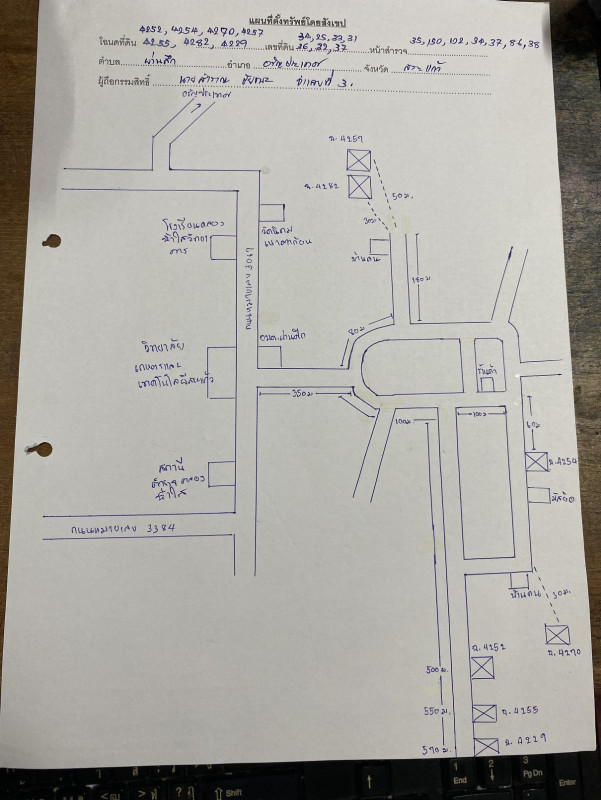 แผนที่ตั้งทรัพย์โดยสังเขป
4252, 4254, 4270, 4257 34, 25, 33, 31
โฉนดที่ดิน 4255, 4282, 4229 เลขที่ดิน 26, 32, 37 หน้าสำรวจ 35, 150, 102, 34, 37, 86, 38
ตำบล ผ่านศึก อำเภอ อรัญประเทศ จังหวัด สระแก้ว
ผู้ถือกรรมสิทธิ์ นายสำราญ จำเลยที่ 3.
อรัญประเทศ
ฉ.4257
ฉ.4282
50 ม.
30 ม.
โรงเรียนคลอง
น้ำใสวิทยา
คาร
บ้านคน
150 ม
80 ม
วิทยาลัย
เกษตรและ
เทคโนโลยีสระแก้ว
อบต.ผ่านศึก
ร้านค้า
350 ม
100 ม
100 ม
60 ม
ฉ.4254
สถานี
ตำรวจคลอง
น้ำใส
มัสยิด
ถนนหมายเลข 3384
บ้านคน
30 ม.
ฉ.4270
ฉ.4252
500 ม.
550 ม.
ฉ.4255
570 ม.
ฉ.4229
Shift
1
End
2
3
PgDn
Enter